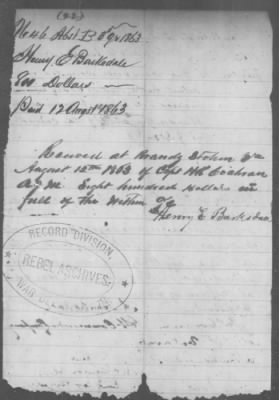 (22)
No 46 Abst B 3 Qr 1863
Henry E Barksdale
800 Dollars
Paid 12 Augst 1863
Received at Brandy Station Va
August 12th 1863 of Capt H K Cochran
AQM Eight hundred dollars in
full of the within
Henry E Barksdale
RECORD DIVISION
REBEL ARCHIVES
WAR DEPARTMENT